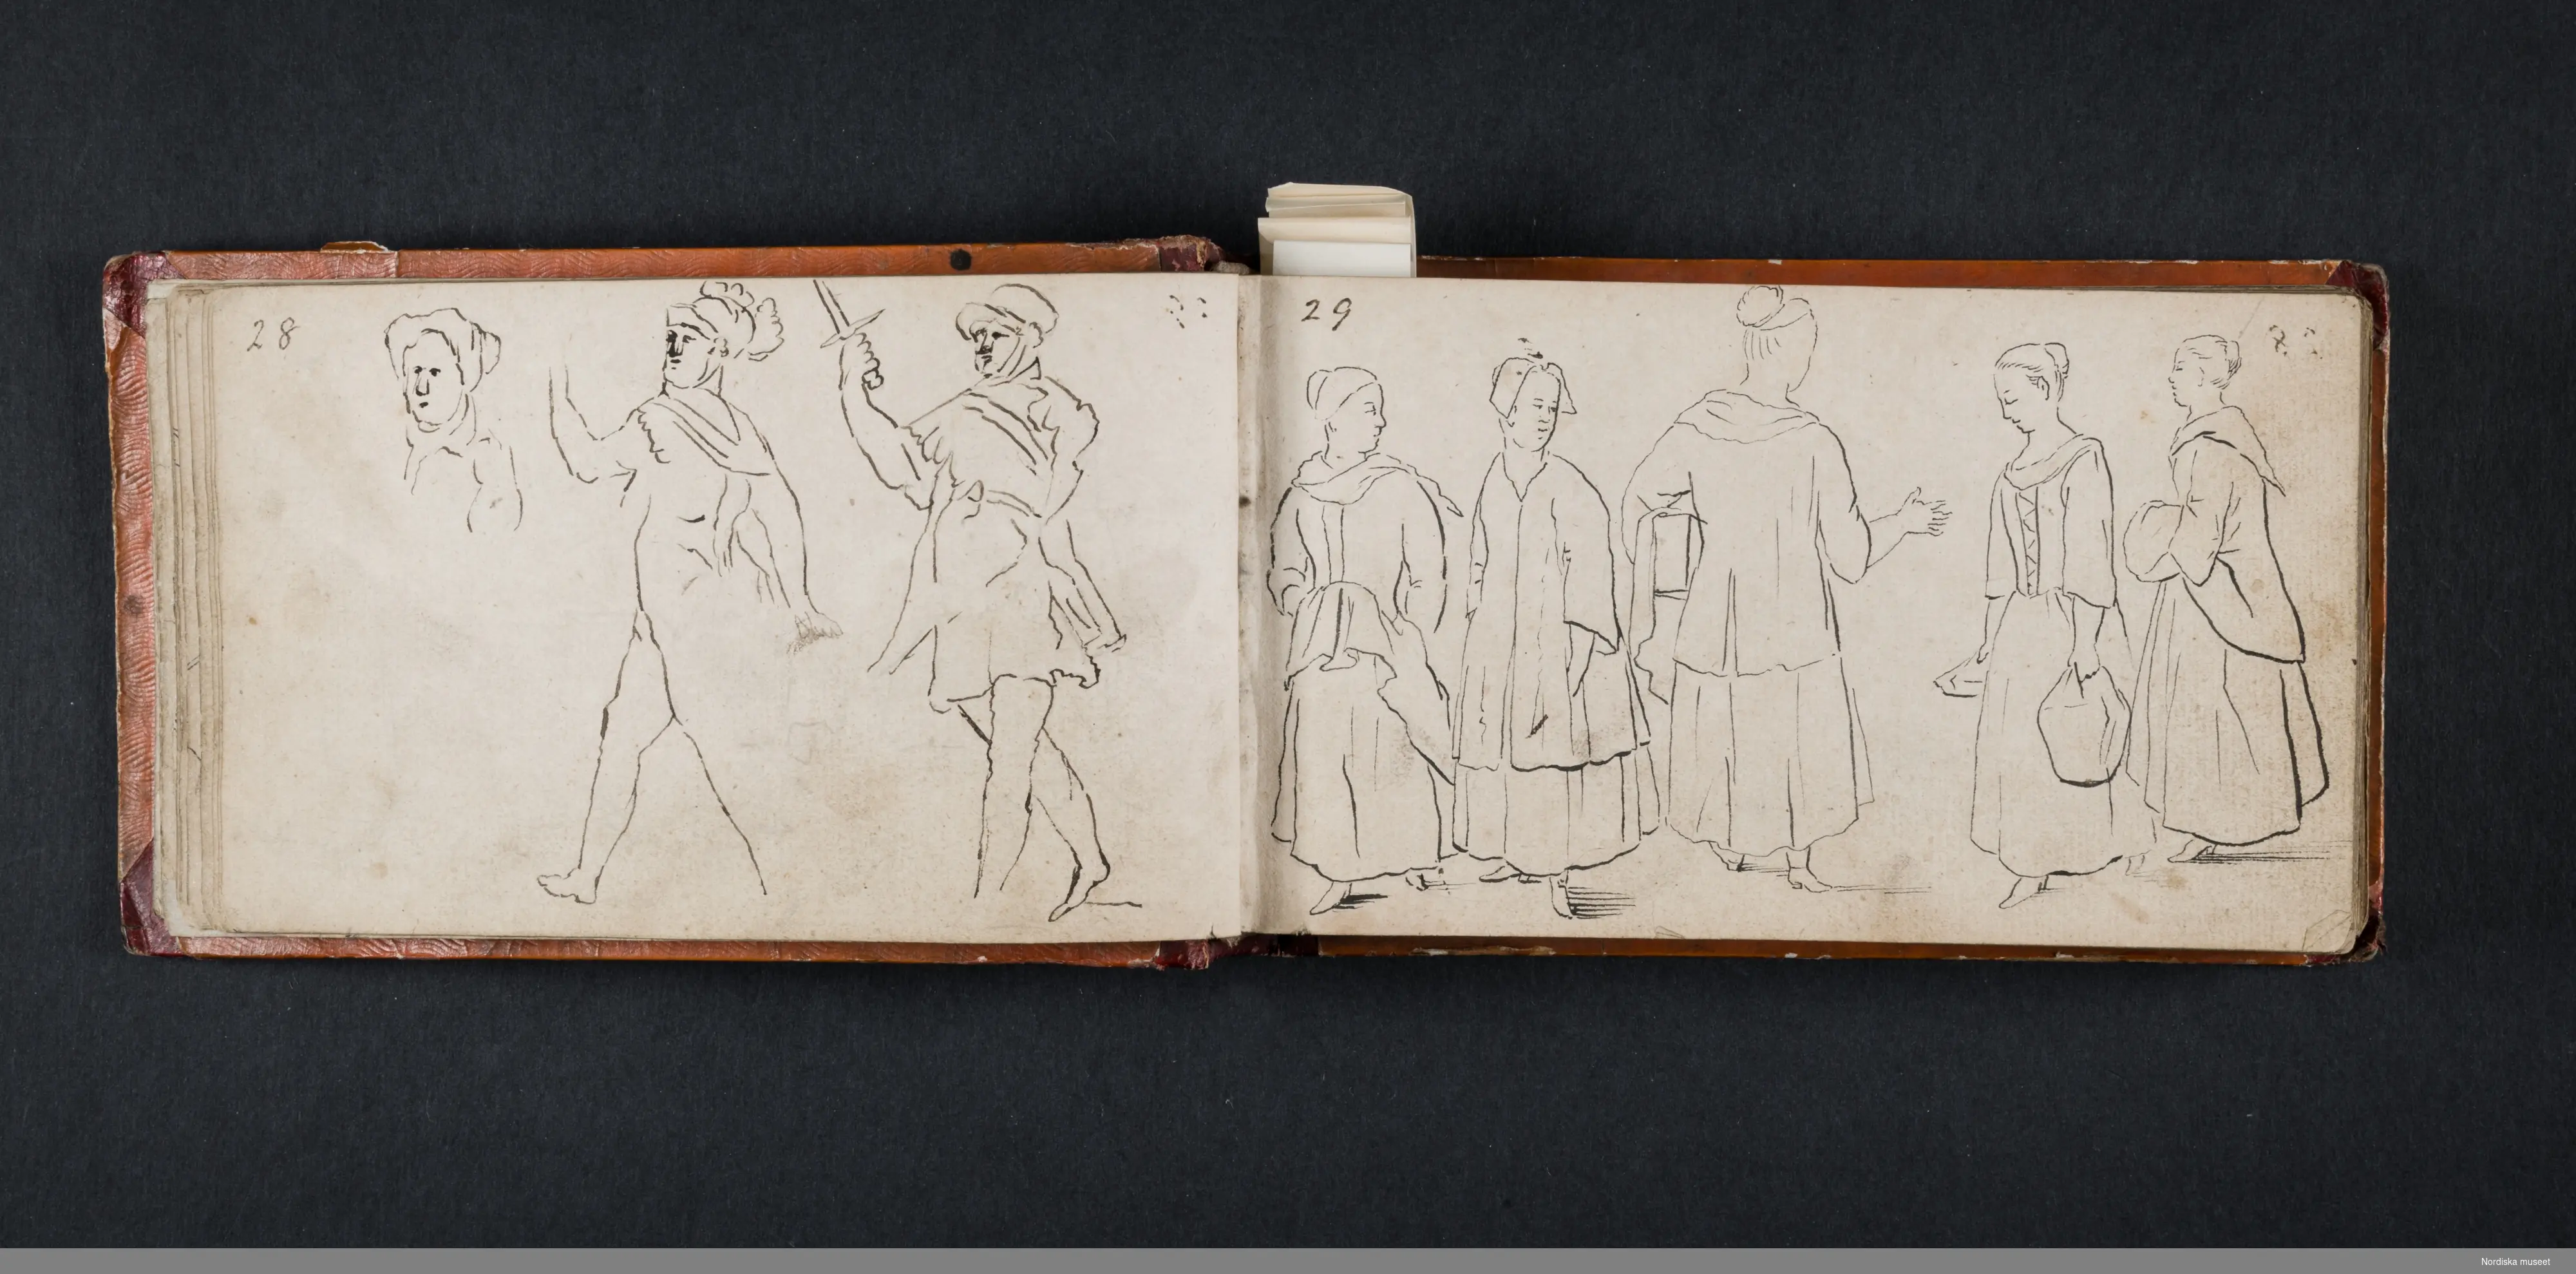 28
29
Nordiska museet